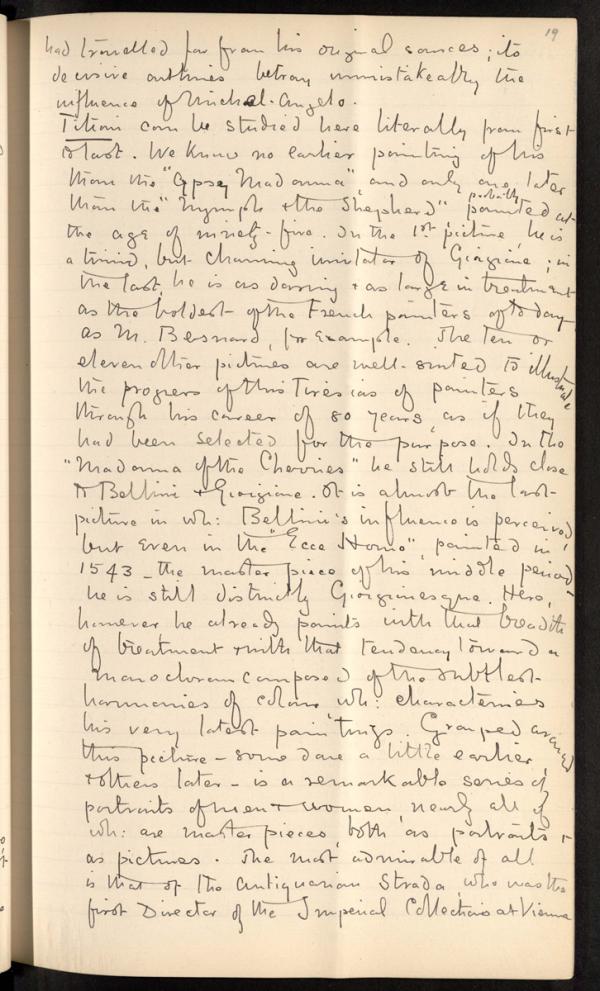 19
had travelled far from his original sources; its
decisive outlines betray unmistakeably the
influence of Michel-Angelo.
Titian can be studied here literally from first
to last. We know no earlier painting of his
than the "Gypsy Madonna", and only one later
than the "Nymph & the Shepherd" probably painted at
the age of ninety-five. In the 1st picture, he is
a timid, but charming imitator of Giorgione; in
the last, he is as daring & as large in treatment
as the boldest of the French painters of to day,
as M. Besnard, for example. The ten or
eleven other pictures are well-suited to illustrate
the progress of this Tiresias of painters
through his career of 80 years, as if they
had been selected for the purpose. In the
"Madonna of the Cherries" he still holds close
to Bellini & Giorgione. It is almost the last
picture in wh: Bellini's influence is perceived,
but even in the "Ecce Homo", painted in
1543 - the master piece of his middle period -
he is still distinctly Giorgionesque. Here,
however he already paints with that breadth
of treatment & with that tendency toward a
monochrom composed of the subtlest
harmonies of colour wh: characterises
his very latest paintings. Grouped around
this picture - some done a little earlier,
& others later - is a remarkable series of
portraits of men & women, nearly all of
wh: are master pieces, both as portraits &
as pictures. The most admirable of all
is that of the antiquarian Strada, who was the
first Director of the Imperial Collections at Vienna